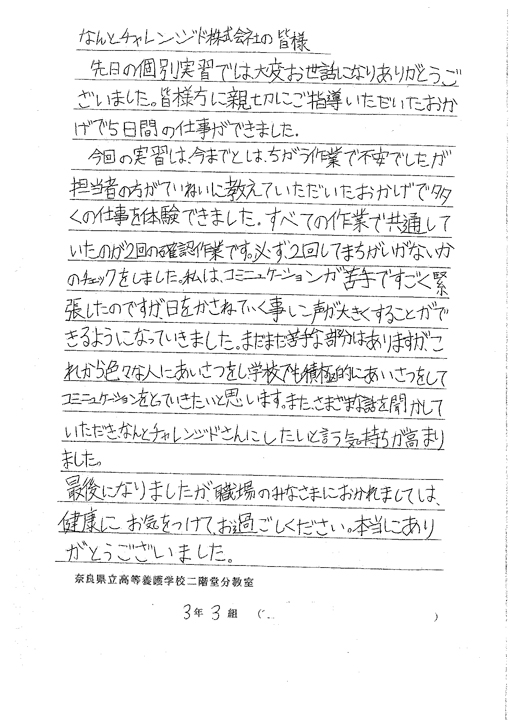 なんとチャレンジド株式会社の皆様
先日の個別実習では大変お世話になりありがとうご
ざいました。皆様方に親切にご指導いただいたおか
げで5日間の仕事ができました.
今回の実習は、今までとは、ちがう作業で不安でしたが
担当者の方がていねいに教えていただいたおかげで多
くの仕事を体験できました. すべての作業で共通して
いたのが2回の確認作業です。必ず2回してまちがいがないか
のチェックをしました。私は、コミニュケーションが苦手ですごく緊
張したのですが、日をかさねていく事に声が大きくすることがで
きるようになっていきました。まだまだ苦手な部分はありますが、こ
れから色々な人にあいさつをし学校でも積極的にあいさつをして
コミニュケーションをとていきたいと思います。また、さまざまな話を聞かして
いただき、なんとチャレンジドさんにしたいと言う気持ちが高まり
ました。
最後になりましたが、職場のみなさまにおかれましては、
健康に お気をつけて、お過ごしください。本当にあり
がとうございました。
奈良県立高等養護学校二階堂分教室
3年 3 組 ( )